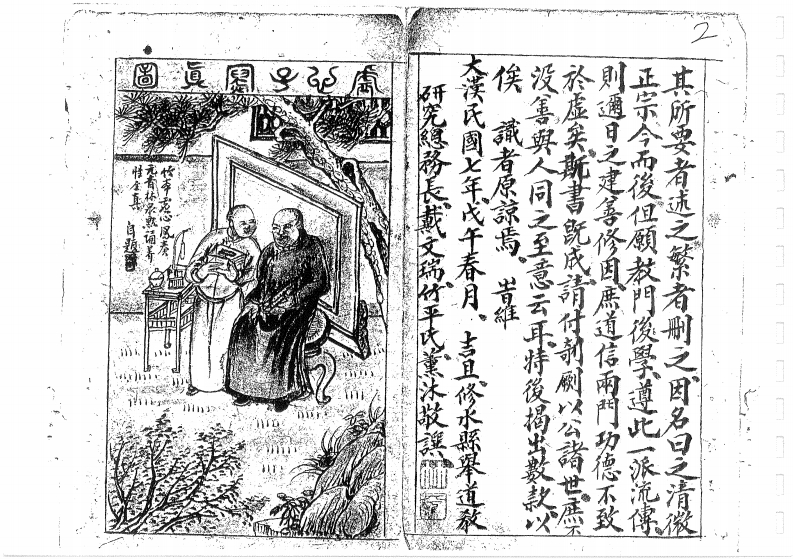 2
其所要者述之繁者刪之因名曰之清微
正宗今而後但願教門後學遵此一派流傳
則邇日之建善修因庶道信兩門功德不致
於虛矣既書既成請付剞劂以公諸世庶不
没善與人同之至意云耳特後揭出數款以
俟 識者原諒焉 旹維
大漢民國七年戊午春月 吉旦修水縣舉道教
研究總務長戴文瑞竹平氏薰沐敬譔
虛心子真圖
虛心風奏
元音
性全真
自題